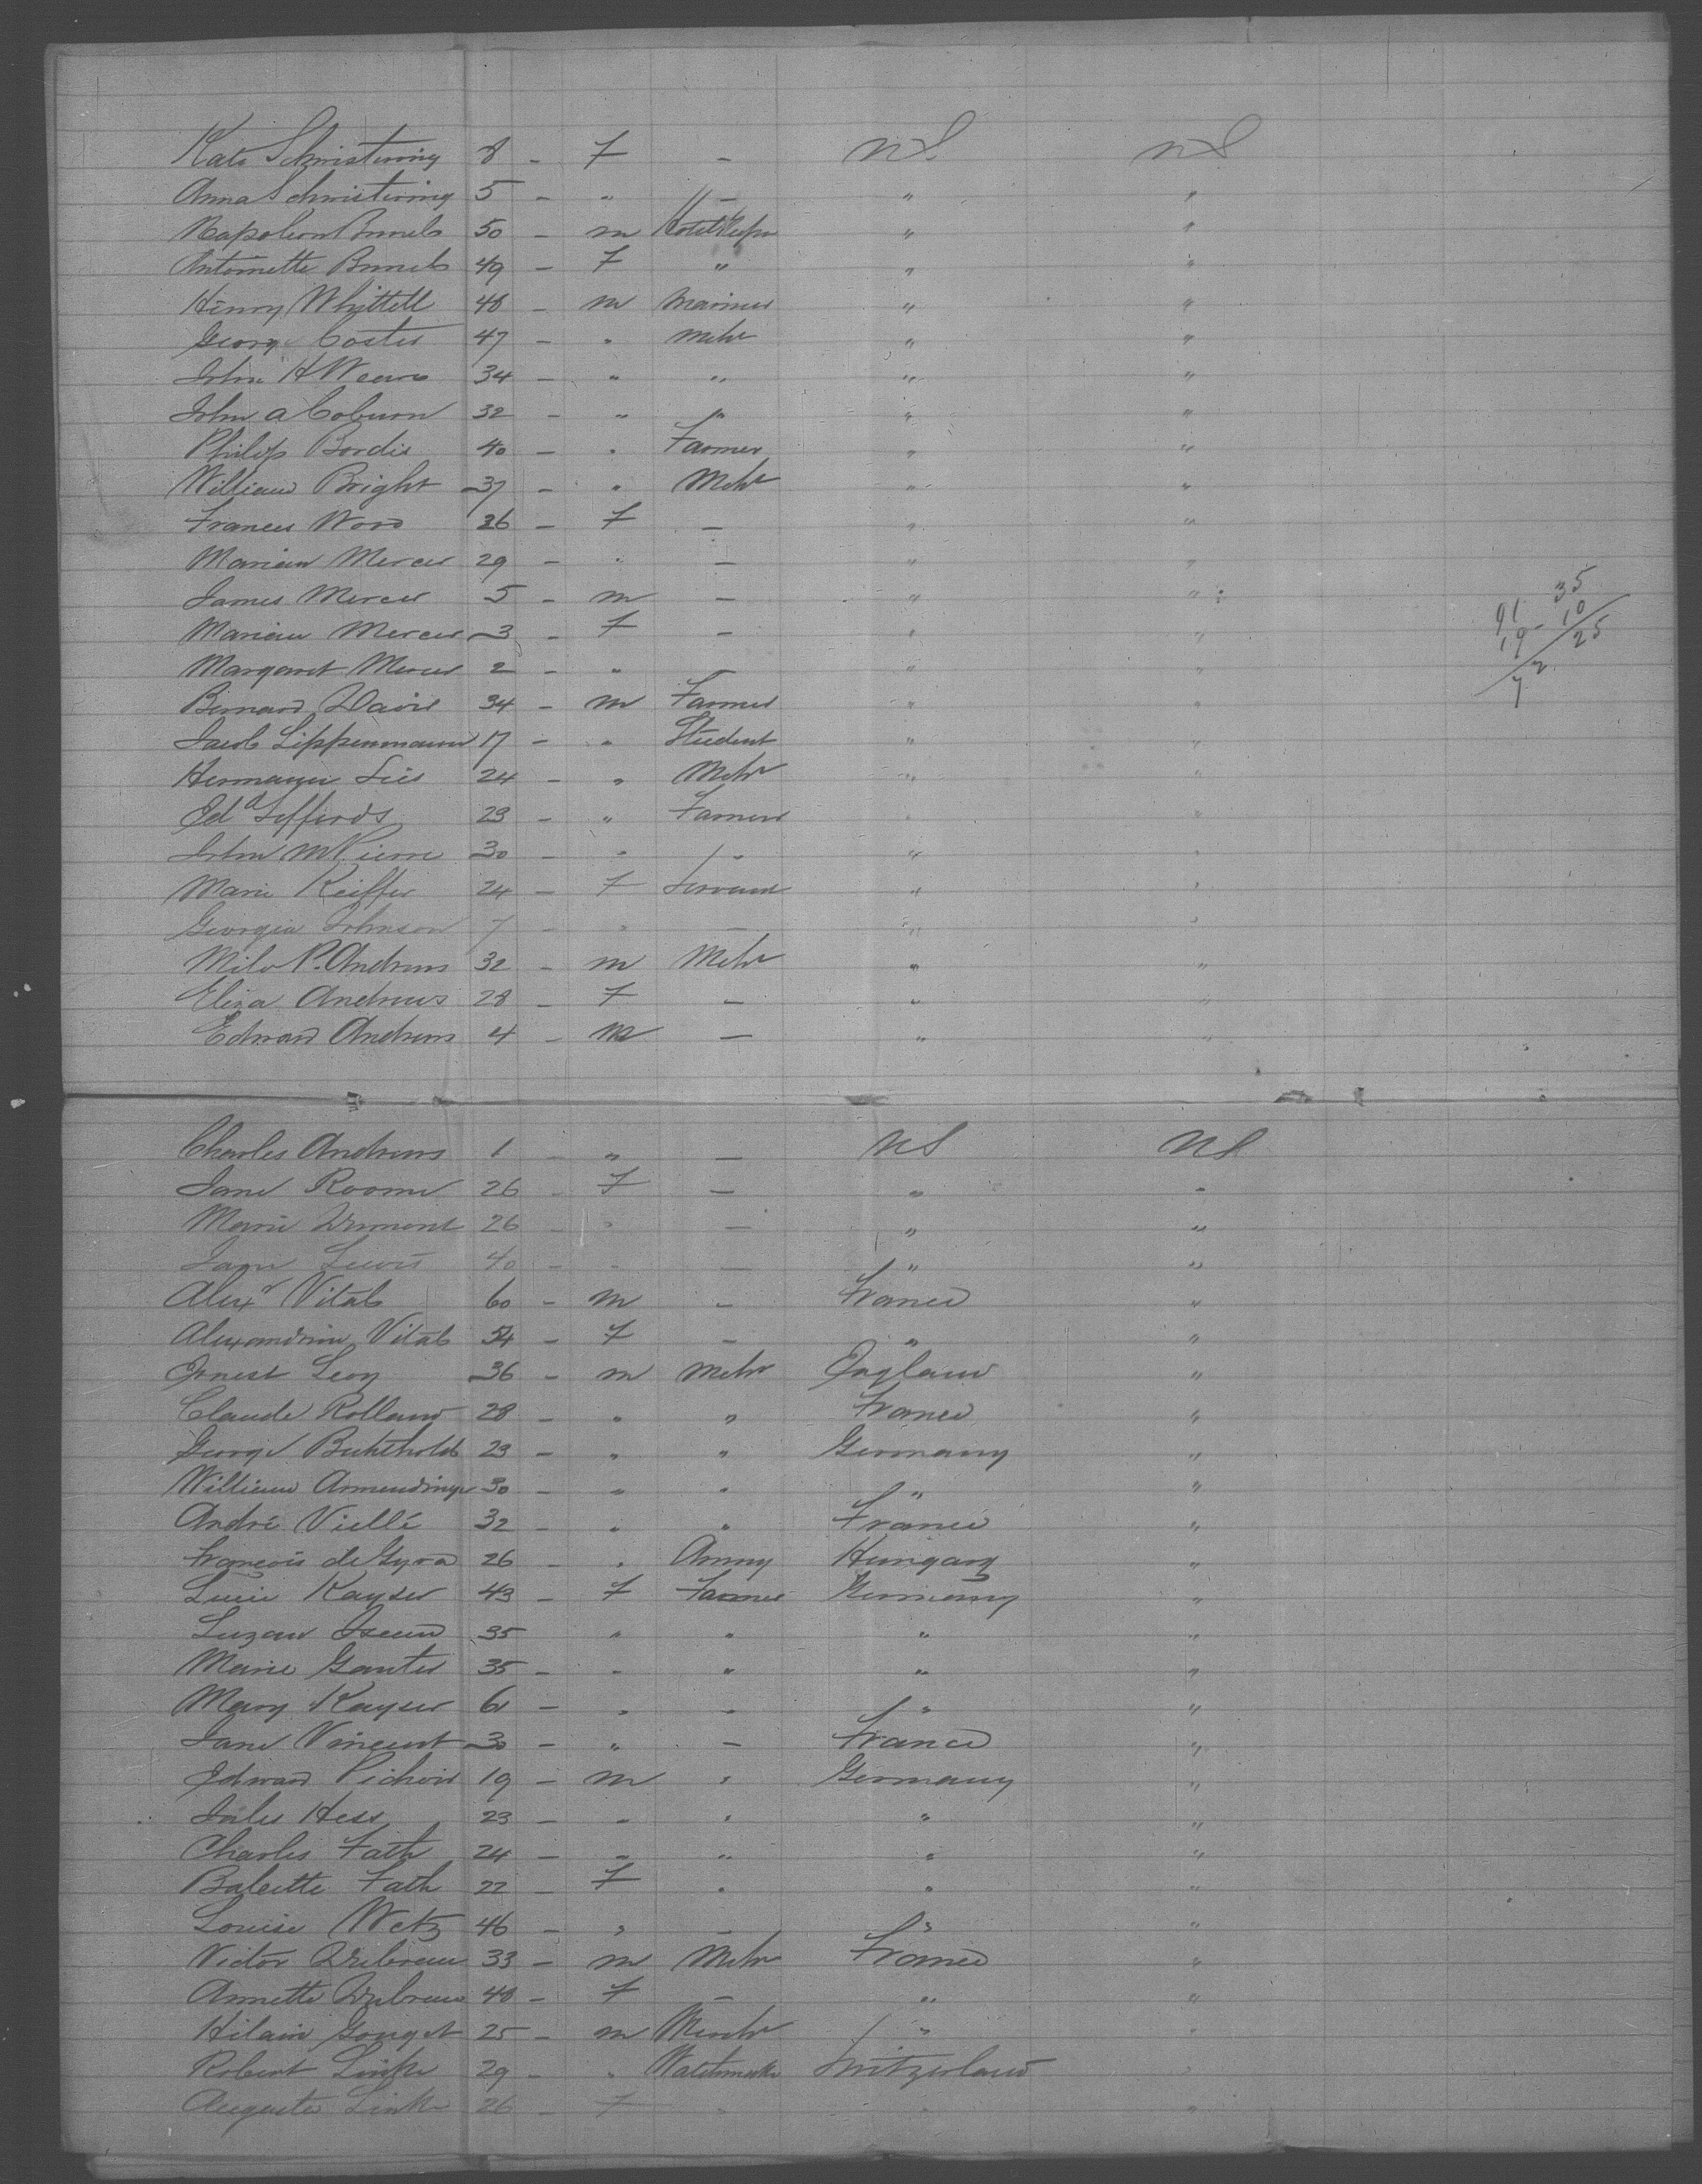 Kate Schnisturing 8 - F - US US
Anna Schnisturing 5 - " - " "
Napoleon Brunels 50 - m Hotelkeeper " "
Antoinette Brunels 49 - F " " "
Henry Whittell 48 - m Mariner " "
George Coster 47 - " Mcht " "
John H Weare 34 - " " " "
John A Coburn 32 - " " " "
Philip Bordis 40 - " Farmer " "
William Bright 37 - " Mcht " "
Frances Wood 26 - F - " "
Marian Mercer 29 - " - " "
James Mercer 5 - m - " "
Marian Mercer 3 - F - " "
Margaret Mercer 2 - " - " "
Bernard Davis 34 - m Farmer " "
Jacob Lippenmann 17 - " Student " "
Hermann Lies 24 - " Mcht " "
Edd Seffords 23 - " Farmer " "
John M Pierre 30 - " " " "
Marie Keiffer 24 - F Servant " "
Georgia Johnson 7 - " - " "
Milo P. Andrews 32 - m Mcht " "
Eliza Andrews 28 - F - " "
Edward Andrews 4 - m - " "
91 35
19 - 10
72 25
Charles Andrews 1 - " - US US
Jane Roome 26 - F - " "
Marie Dumont 26 - " - " "
Jane Lewis 40 - " - " "
Alexr Vitals 60 - m - France "
Alexandrine Vitals 54 - F - " "
Ernest Levy 36 - m Mcht England "
Claude Rolland 28 - " " France "
George Buchholds 23 - " " Germany "
William Armendinger 30 - " " " "
André Viellé 32 - " " France "
François de Gyra 26 - " Army Hungary "
Lucie Kayser 43 - F Farmer Germany "
35 - " " " "
Marie Ganter 35 - " " " "
Mary Kayser 61 - " " " "
Jane Vincent 30 - " - France "
Edward Pichoir 19 - m " Germany "
Jules Hess 23 - " " " "
Charles Fath 24 - " " " "
Babette Fath 22 - F " " "
Louise Wetz 46 - " - " "
Victor Dubreau 33 - m Mcht France "
Annette Dubreau 48 - F - " "
Hilain Gouget 25 - m Mercht " "
Robert Linke 29 - " Watchmaker Switzerland "
Auguste Linke 26 - F " " "